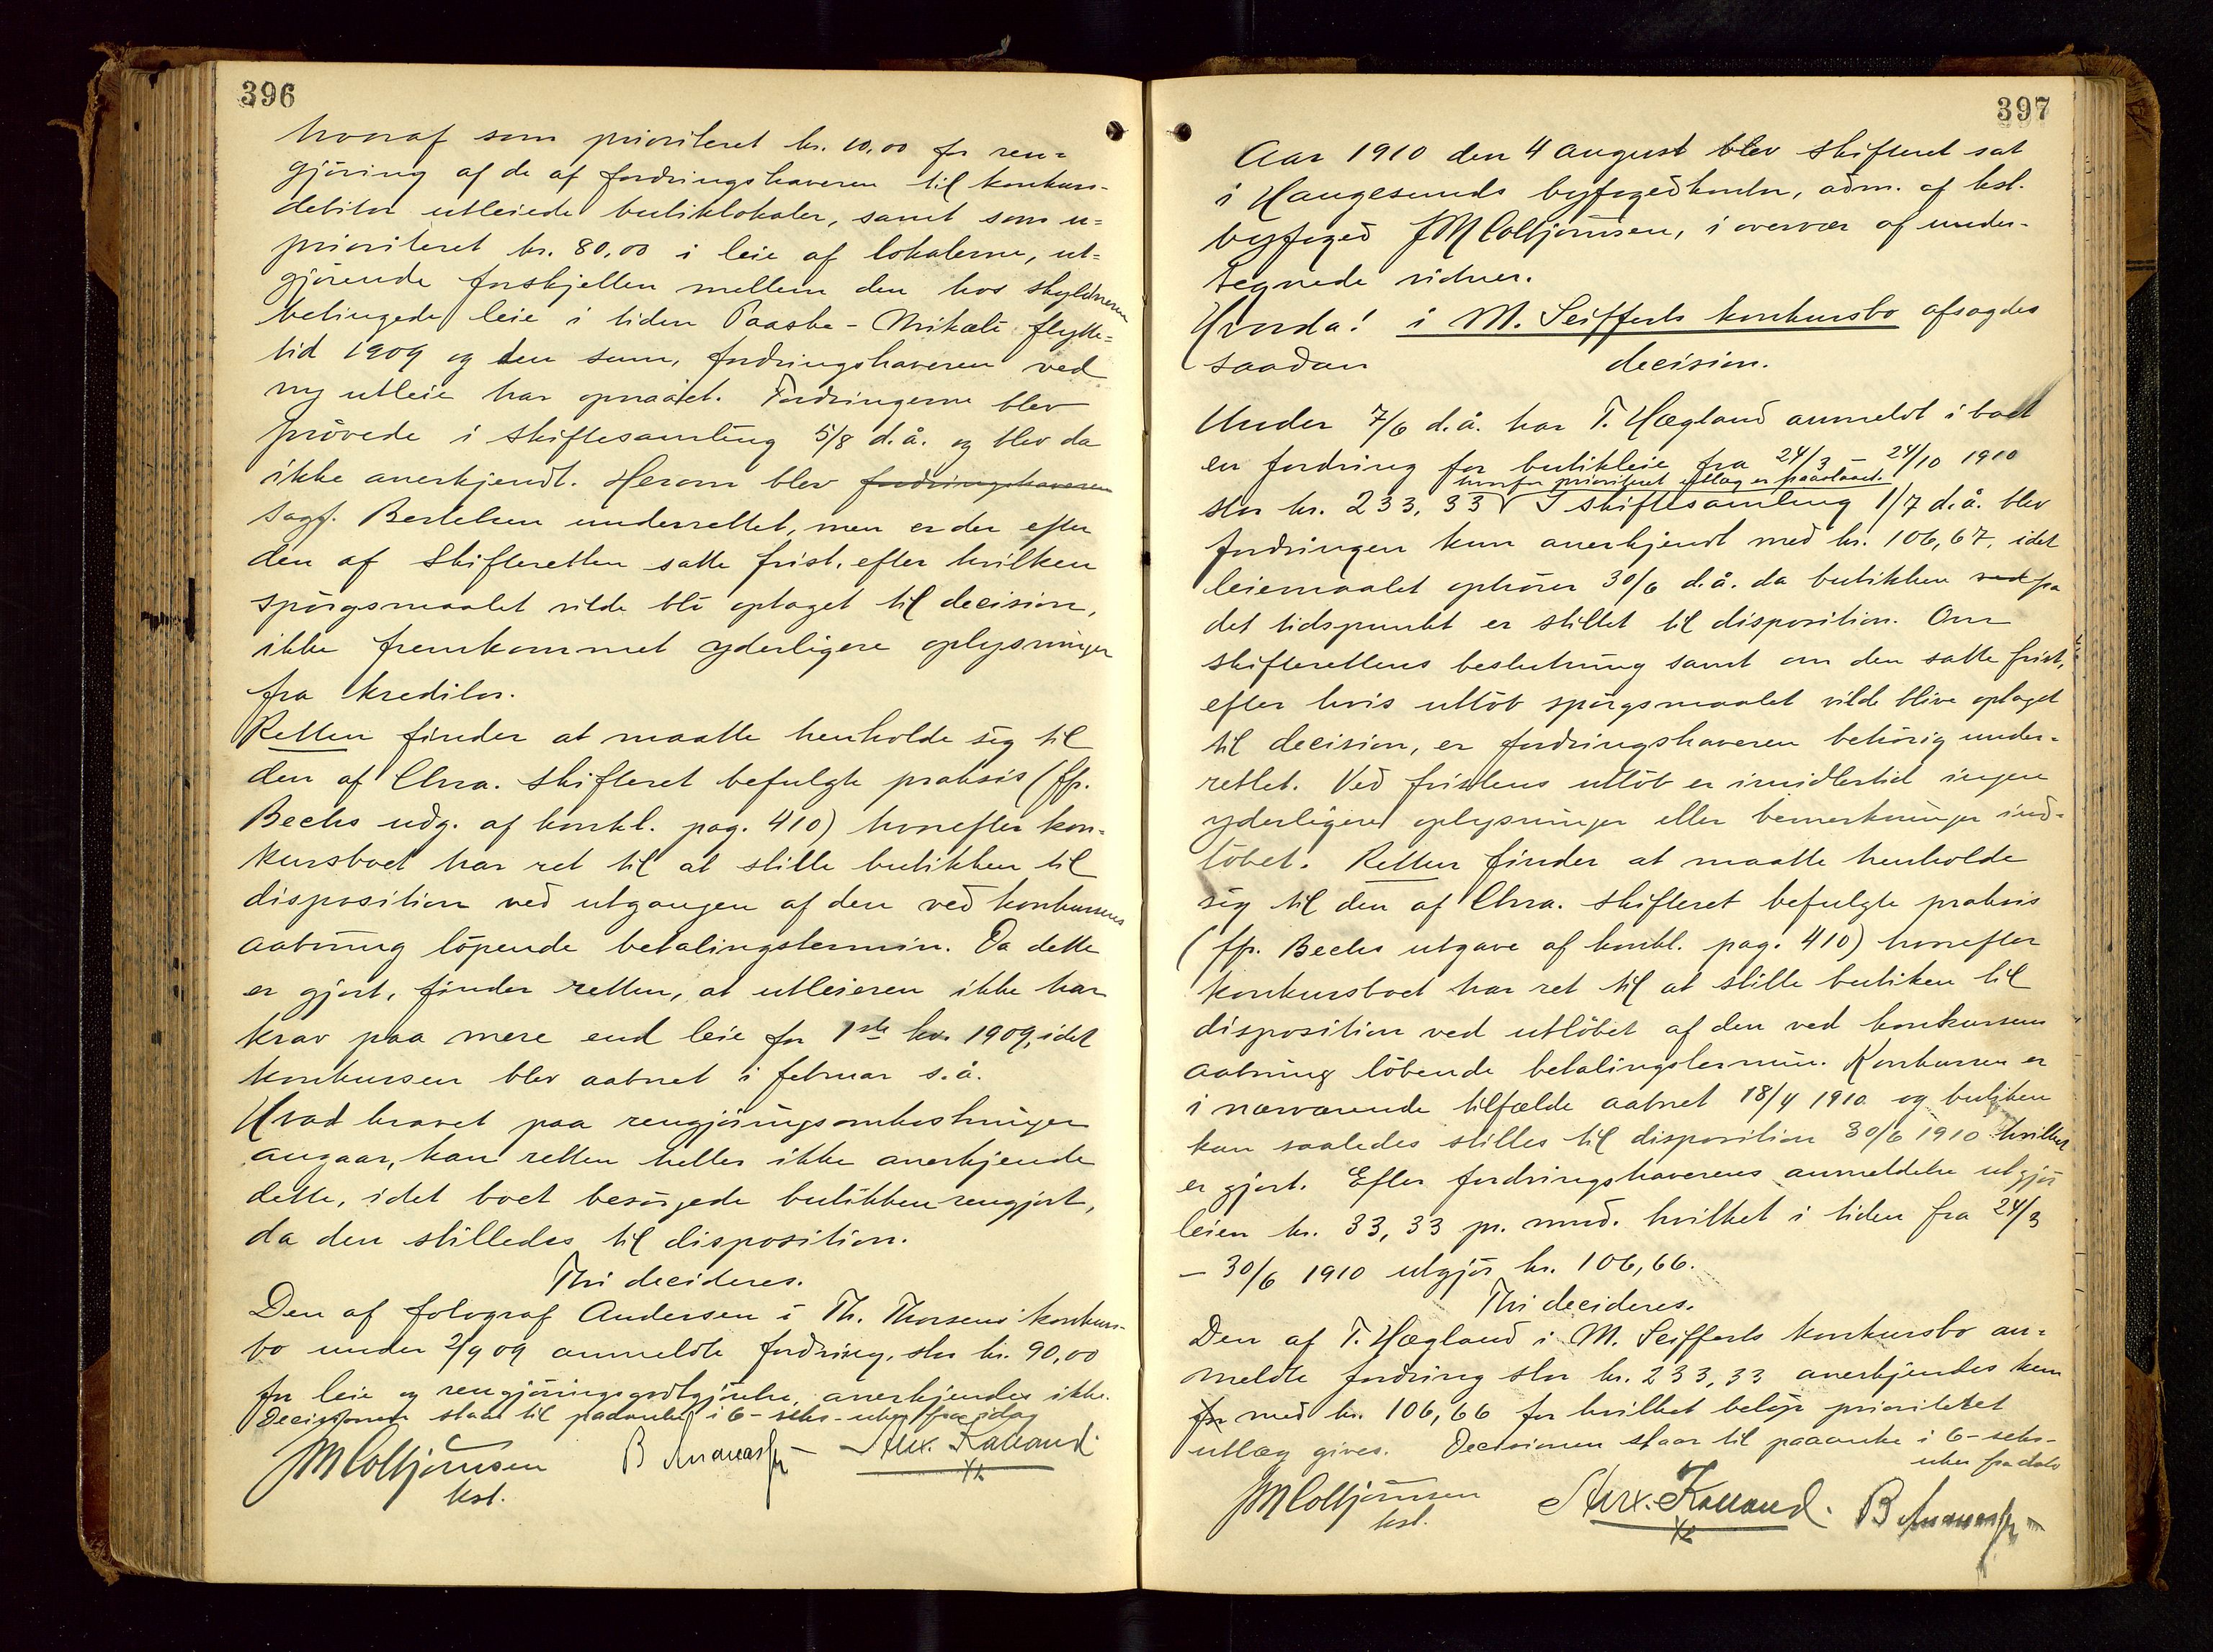 396
hvoraf som prioriteret kr. 10,00 for ren=
gjöring af de af fordringshaveren til konkurs-
debitor utleiede butiklokaler, samt som u=
prioriteret kr. 80,00 i leie af lokalerne, ut=
gjörende forskjellen mellem den hos skyldneren
betingede leie i tiden Paaske - Mikæli flytte=
tid 1909 og den sum, fordringshaveren ved
ny utleie har opnaaet. Fordringerne blev
prövede i skiftesamling 5/8 d.å. og blev da
ikke anerkjendt. Herom blev fordringshaveren
sagf. Bertelsen underrettet, men er der efter
den af skifteretten satte frist, efter hvilken
spörgsmaalet vilde bli optaget til decision,
ikke fremkommet yderligere oplysninger
fra kreditor.
Retten finder at maatte henholde sig til
den af Chra. skifteret befulgte praksis (ffr.
Bechs udg. af konkl. pag. 410) hvorefter kon-
kursboet har ret til at stille butikken til
disposition ved utgangen af den ved konkursens
aabning löpende betalingstermin. Da dette
er gjort, finder retten, at utleieren ikke har
krav paa mere end leie for 1ste kv. 1909, idet
konkursen blev aabnet i februar s.å.
Hvad kravet paa rengjöringsomkostninger
angaar, kan retten heller ikke anerkjende
dette, idet boet besörgede butikken rengjort,
da den stilledes til disposition.
Thi decideres.
Den af fotograf Andersen i Th. Thorsens konkurs-
bo under 2/9 09 anmeldte fordring, stor kr. 90,00
for leie og rengjöringsgodtgjörelse, anerkjendes ikke.
Decisionen staar til paaanke i 6-seks-uker fra idag
JM Colbjörnsen
kst.
Alex. Kalland
397
Aar 1910 den 4 august blev skifteret sat
i Haugesunds byfogedkontor, adm. af kst.
byfoged JM Colbjörnsen, i overvær af under-
tegnede vidner.
Hvorda! i M. Seifferts konkursbo afsagdes
saadan decision.
Under 7/6 d.å. har T. Hægland anmeldt i boet
en fordring for butikleie fra 24/3 - 24/10 1910
hvorfor prioriteret utlæg er paastaaet.
stor kr. 233,33 I skiftesamling 1/7 d.å. blev
fordringen kun anerkjendt med kr. 106,67, idet
leiemaalet ophörer 30/6 d.å. da butikken ved paa
det tidspunkt er stillet til disposition. Om
skifterettens beslutning samt om den satte frist,
efter hvis utlöb spörgsmaalet vilde blive optaget
til decision, er fordringshaveren behörig under-
rettet. Ved fristens utlöb er imidlertid ingen
yderligere oplysninger eller bemerkninger ind-
löbet. Retten finder at maatte henholde
sig til den af Chra. skifteret befulgte praksis
(ffr. Bechs utgave af konkl. pag. 410) hvorefter
konkursboet har ret til at stille butiken til
disposition ved utlöbet af den ved konkursens
aabning löbende betalingstermin. Konkursen er
i nærværende tilfælde aabnet 18/4 1910 og butiken
kan saaledes stilles til disposition 30/6 1910 hvilket
er gjort. Efter fordringshaverens anmeldelse utgjör
leien kr. 33,33 pr. mnd. hvilket i tiden fra 24/3
- 30/6 1910 utgjör kr. 106,66.
Thi decideres.
Den af T. Hægland i M. Seifferts konkursbo an=
meldte fordring stor kr. 233,33 anerkjendes kun
for med kr. 106,66 for hvilket belöp prioriteret
utlæg gives. Decisionen staar til paaanke i 6-seks-
uker fra dato
JM Colbjörnsen
kst.
Alex. Kalland.